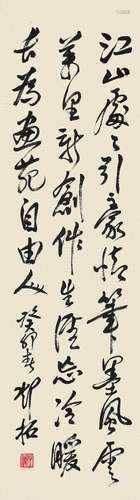 江山處々引豪情筆墨風雲
萬里新創作生涯忘冷暖
長為畫苑自由人 癸卯春 鄧拓